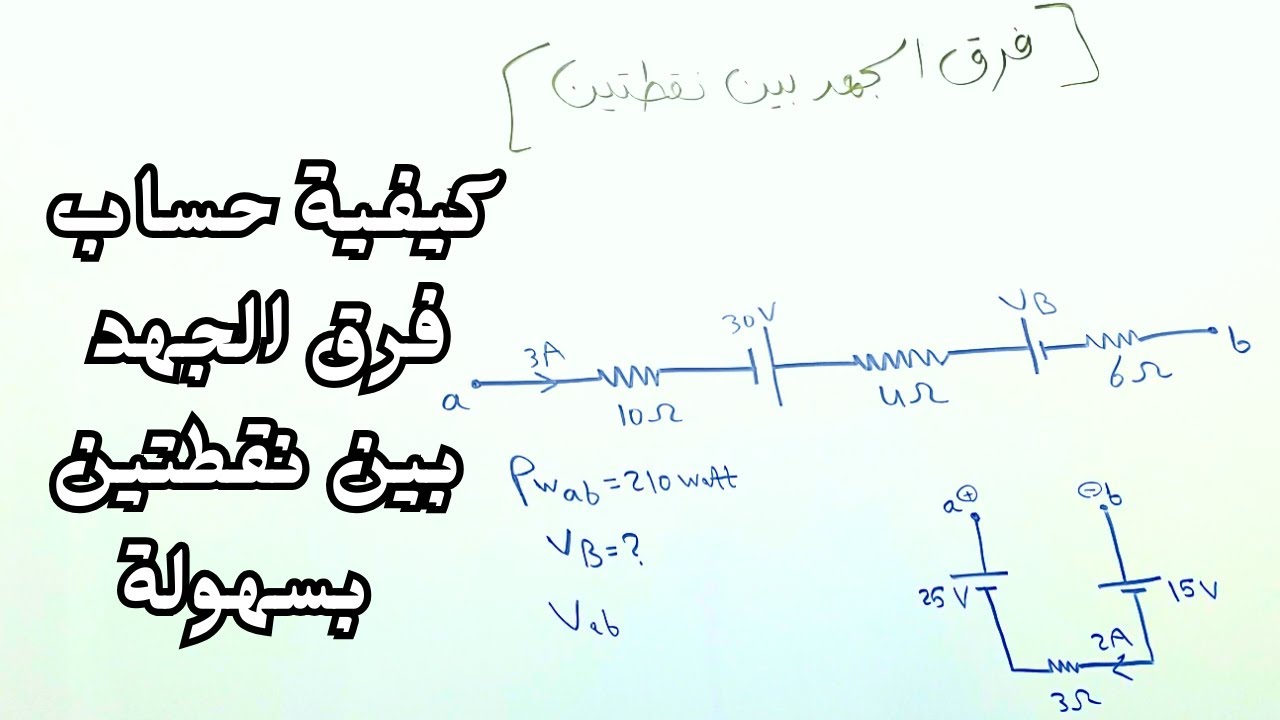 [فرق الجهد بين نقطتين]
كيفية حساب
فرق الجهد
بين نقطتين
بسهولة
a
3A
10Ω
30V
4Ω
VB
6Ω
b
Pwab = 210 watt
VB = ?
Vab
a⊕
⊖b
25V
15V
2A
3Ω